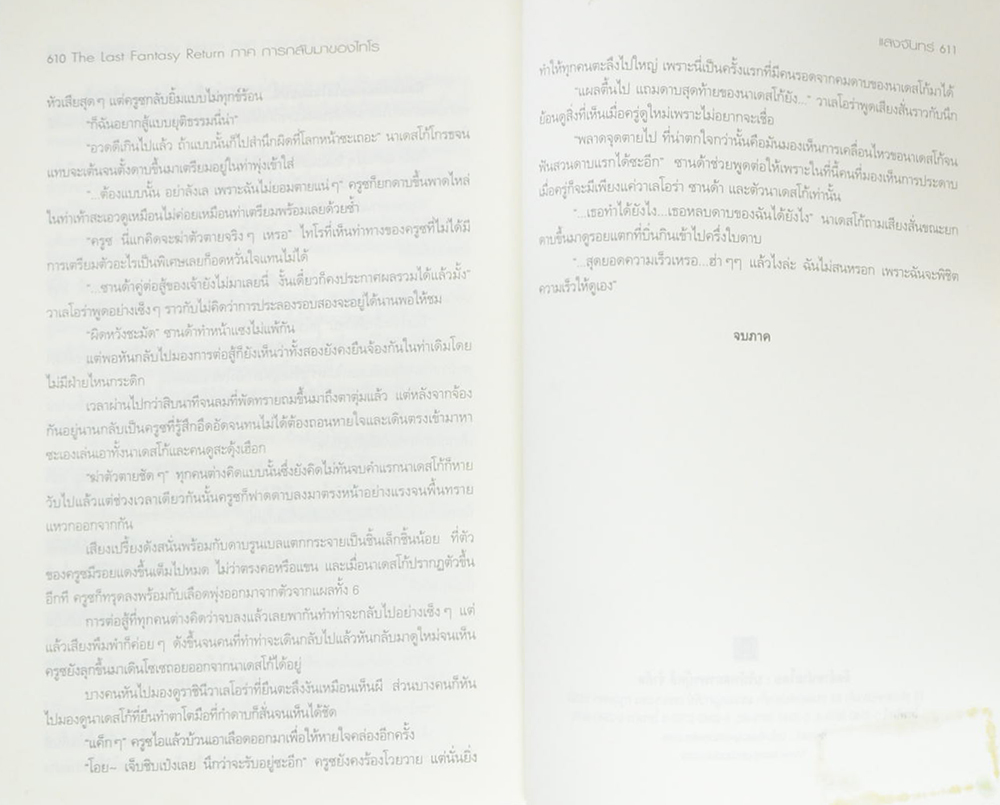 610 The Last Fantasy Return ภาค การกลับมาของไทโร
หัวเสียสุดๆ แต่ครูซกลับยิ้มแบบไม่ทุกข์ร้อน
"ก็ฉันอยากสู้แบบยุติธรรมนี่น่า"
"อวดดีเกินไปแล้ว ถ้าแบบนั้นก็ไปสำนึกผิดที่โลกหน้าซะเถอะ" นาเดสโก้โกรธจน
แทบจะเต้นจนตั้งดาบขึ้นมาเตรียมอยู่ในท่าพุ่งเข้าใส่
"...ต้องแบบนั้น อย่าลังเล เพราะฉันไม่ยอมตายแน่ๆ" ครูซก็ยกดาบขึ้นพาดไหล่
ในท่าเท้าสะเอวดูเหมือนไม่ค่อยเหมือนท่าเตรียมพร้อมเลยด้วยซ้ำ
"ครูซ นี่แกคิดจะฆ่าตัวตายจริงๆ เหรอ" ไทโรที่เห็นท่าทางของครูซที่ไม่ได้มี
การเตรียมตัวอะไรเป็นพิเศษเลยก็อดหวั่นใจแทนไม่ได้
"...ซานด้าคู่ต่อสู้ของเจ้ายังไม่มาเลยนี่ งั้นเดี๋ยวก็คงประกาศผลรวมได้แล้วมั้ง"
วาเลโอร่าพูดอย่างเซ็งๆ ราวกับไม่คิดว่าการประลองรอบสองจะอยู่ได้นานพอให้ชม
"ผิดหวังชะมัด" ซานด้าทำหน้าแซงไม่แพ้กัน
แต่พอหันกลับไปมองการต่อสู้ก็ยังเห็นว่าทั้งสองยังคงยืนจ้องกันในท่าเดิมโดย
ไม่มีฝ่ายไหนกระดิก
เวลาผ่านไปกว่าสิบนาทีจนลมที่พัดทรายถมขึ้นมาถึงตาตุ่มแล้ว แต่หลังจากจ้อง
กันอยู่นานกลับเป็นครูซที่รู้สึกอึดอัดจนทนไม่ได้ต้องถอนหายใจและเดินตรงเข้ามาหา
ซะเองเล่นเอาทั้งนาเดสโก้และคนดูสะดุ้งเฮือก
"ฆ่าตัวตายชัดๆ" ทุกคนต่างคิดแบบนั้นซึ่งยังคิดไม่ทันจบคำแรกนาเดสโก้ก็หาย
วับไปแล้วแต่ช่วงเวลาเดียวกันนั้นครูซก็ฟาดดาบลงมาตรงหน้าอย่างแรงจนพื้นทราย
แหวกออกจากกัน
เสียงเปรี้ยงดังสนั่นพร้อมกับดาบรูนเบลแตกกระจายเป็นชิ้นเล็กชิ้นน้อย ที่ตัว
ของครูซมีรอยแดงขึ้นเต็มไปหมด ไม่ว่าตรงคอหรือแขน และเมื่อนาเดสโก้ปรากฏตัวขึ้น
อีกที ครูซก็ทรุดลงพร้อมกับเลือดพุ่งออกมาจากตัวจากแผลทั้ง 6
การต่อสู้ที่ทุกคนต่างคิดว่าจบลงแล้วเลยพากันทำท่าจะกลับไปอย่างเซ็งๆ แต่
แล้วเสียงพึมพำก็ค่อยๆ ดังขึ้นจนคนที่ทำท่าจะเดินกลับไปแล้วหันกลับมาดูใหม่จนเห็น
ครูซยังลุกขึ้นมาเดินโซเซถอยออกจากนาเดสโก้ได้อยู่
บางคนหันไปมองดูราชินีวาเลโอร่าที่ยืนตะลึงงันเหมือนเห็นผี ส่วนบางคนก็หัน
ไปมองดูนาเดสโก้ที่ยืนทำตาโตมือที่กำดาบก็สั่นจนเห็นได้ชัด
"แค็กๆ" ครูซไอแล้วบ้วนเอาเลือดออกมาเพื่อให้หายใจคล่องอีกครั้ง
"โอย~ เจ็บชิบเป๋งเลย นึกว่าจะรับอยู่ซะอีก" ครูซยังคงร้องโวยวาย แต่นั่นยิ่ง
แสงจันทร์ 611
ทำให้ทุกคนตะลึงไปใหญ่ เพราะนี่เป็นครั้งแรกที่มีคนรอดจากคมดาบของนาเดสโก้มาได้
"แผลตื้นไป แถมดาบสุดท้ายของนาเดสโก้ยัง..." วาเลโอร่าพูดเสียงสั่นราวกับนึก
ย้อนดูสิ่งที่เห็นเมื่อครู่ดูใหม่เพราะไม่อยากจะเชื่อ
"พลาดจุดตายไป ที่น่าตกใจกว่านั้นคือมันมองเห็นการเคลื่อนไหวของนาเดสโก้จน
ฟันสวนดาบแรกได้ซะอีก" ซานด้าช่วยพูดต่อให้เพราะในที่นี้คนที่มองเห็นการประดาบ
เมื่อครู่ก็จะมีเพียงแค่วาเลโอร่า ซานด้า และตัวนาเดสโก้เท่านั้น
"...เธอทำได้ยังไง...เธอหลบดาบของฉันได้ยังไง" นาเดสโก้ถามเสียงสั่นขณะยก
ดาบขึ้นมาดูรอยแตกที่บิ่นกินเข้าไปครึ่งใบดาบ
"...สุดยอดความเร็วเหรอ...ฮ่าๆๆ แล้วไงล่ะ ฉันไม่สนหรอก เพราะฉันจะพิชิต
ความเร็วให้ดูเอง"
จบภาค